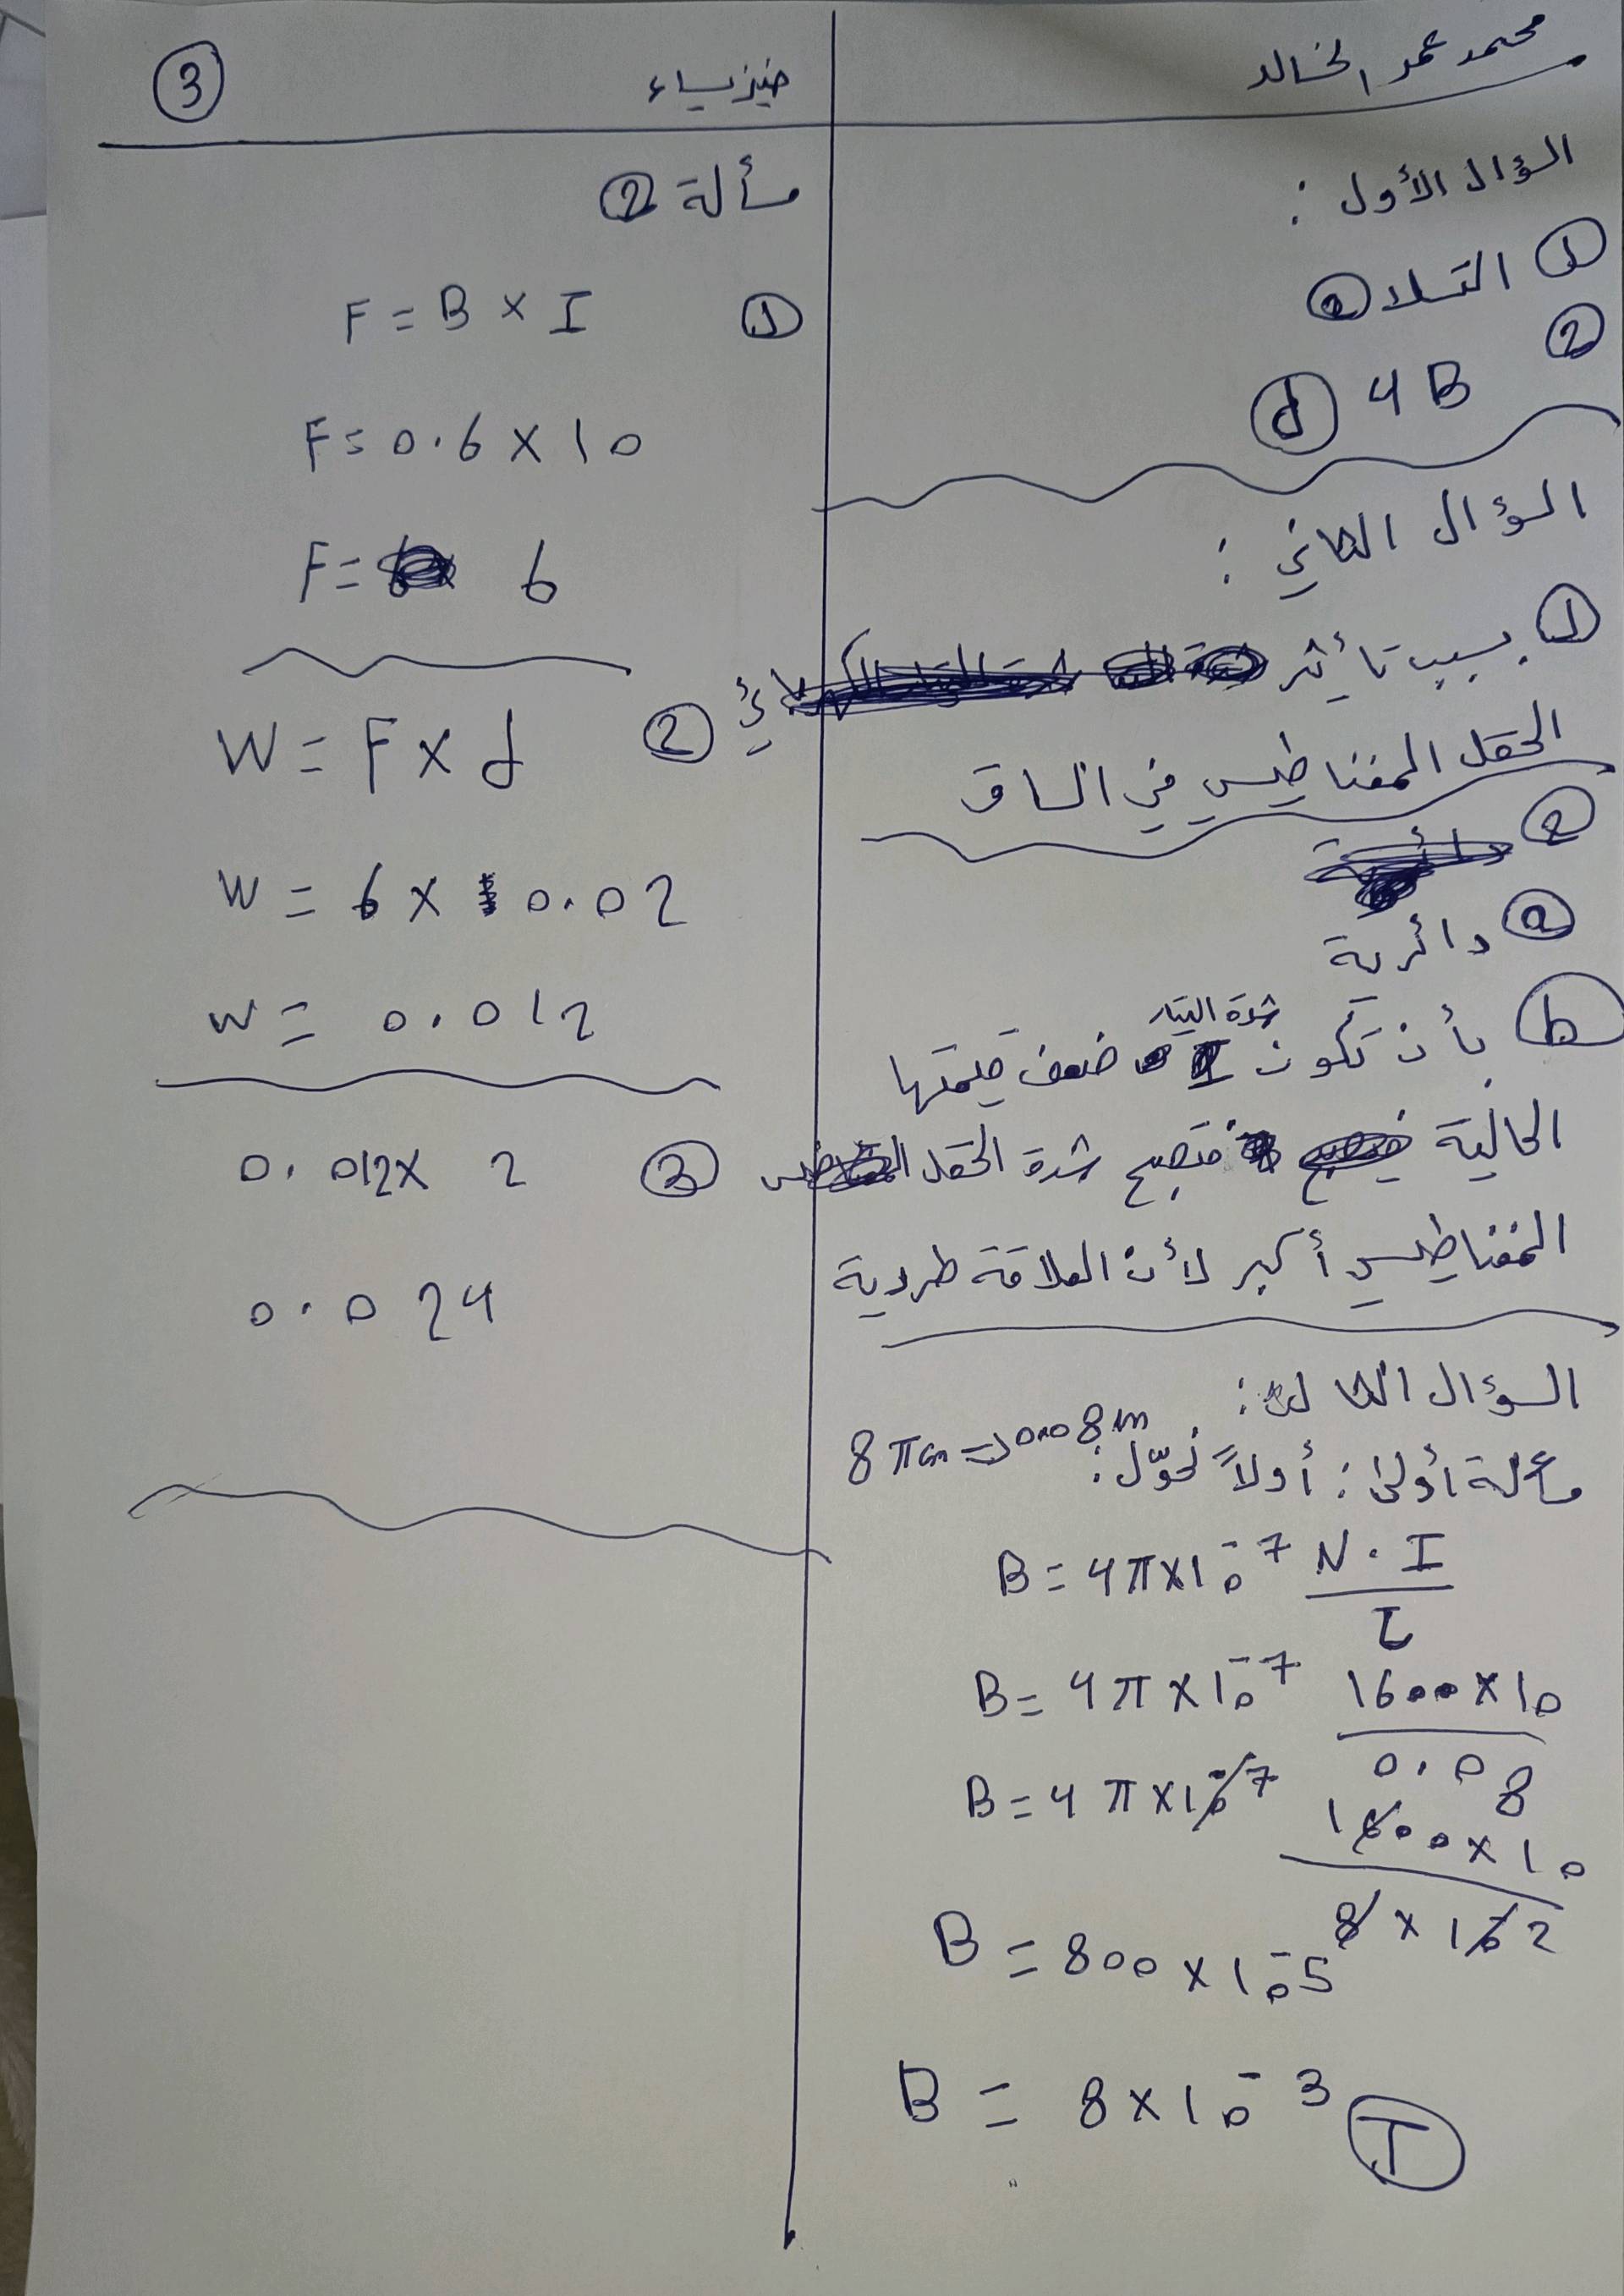 محمد عمر الخالد
فيزياء
3
السؤال الأول :
1 التسلا a
2
4B d
السؤال الثاني :
1 بسبب تأثير
الحقل المغناطيسي في الساق
2
a دائرية
شدة التيار
b بأن تكون ضعف قيمتها
الحالية فتصبح شدة الحقل
المغناطيسي أكبر لأن العلاقة طردية
السؤال الثالث :
8 π cm => 0.08 m
مسألة أولى : أولاً نحوّل :
B = 4π×10⁻⁷ N . I / L
B = 4π×10⁻⁷ 1600×10 / 0.08
B = 4π×10⁻⁷ 1600×10 / 8×10⁻²
B = 800×10⁻⁵
B = 8×10⁻³ T
مسألة 2
1 F = B × I
F = 0.6 × 10
F = 6
2 W = F × d
W = 6 × 0.02
W = 0.012
3 0.012 × 2
0.024